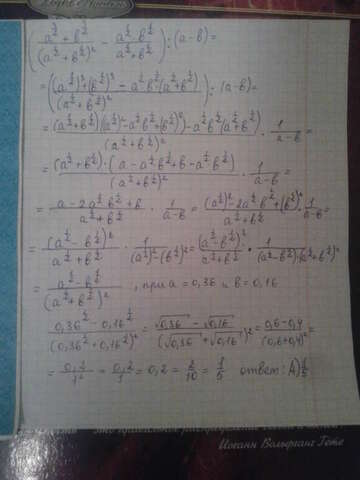 ( (a^{3/2} + b^{3/2}) / (a^{1/2} + b^{1/2})² − (a^{1/2} · b^{1/2}) / (a^{1/2} + b^{1/2}) ) : (a − b) =
= ( ((a^{1/2})³ + (b^{1/2})³ − a^{1/2} b^{1/2} (a^{1/2} + b^{1/2})) / (a^{1/2} + b^{1/2})² ) : (a − b) =
= ((a^{1/2} + b^{1/2})((a^{1/2})² − a^{1/2} b^{1/2} + (b^{1/2})²) − a^{1/2} b^{1/2} (a^{1/2} + b^{1/2})) / (a^{1/2} + b^{1/2})² · 1/(a − b) =
= (a^{1/2} + b^{1/2}) · (a − a^{1/2} b^{1/2} + b − a^{1/2} b^{1/2}) / (a^{1/2} + b^{1/2})² · 1/(a − b) =
= (a − 2a^{1/2} b^{1/2} + b) / (a^{1/2} + b^{1/2}) · 1/(a − b) = ((a^{1/2})² − 2a^{1/2} b^{1/2} + (b^{1/2})²) / (a^{1/2} + b^{1/2}) · 1/(a − b) =
= (a^{1/2} − b^{1/2})² / (a^{1/2} + b^{1/2}) · 1/((a^{1/2})² − (b^{1/2})²) = (a^{1/2} − b^{1/2})² / (a^{1/2} + b^{1/2}) · 1/((a^{1/2} − b^{1/2}) · (a^{1/2} + b^{1/2})) =
= (a^{1/2} − b^{1/2}) / (a^{1/2} + b^{1/2})² , при a = 0,36 и b = 0,16
(0,36^{1/2} − 0,16^{1/2}) / (0,36^{1/2} + 0,16^{1/2})² = (√0,36 − √0,16) / (√0,36 + √0,16)² = (0,6 − 0,4) / (0,6 + 0,4)² =
= 0,2/1² = 0,2/1 = 0,2 = 2/10 = 1/5 ответ: А) 1/5
Иоганн Вольфганг Гете